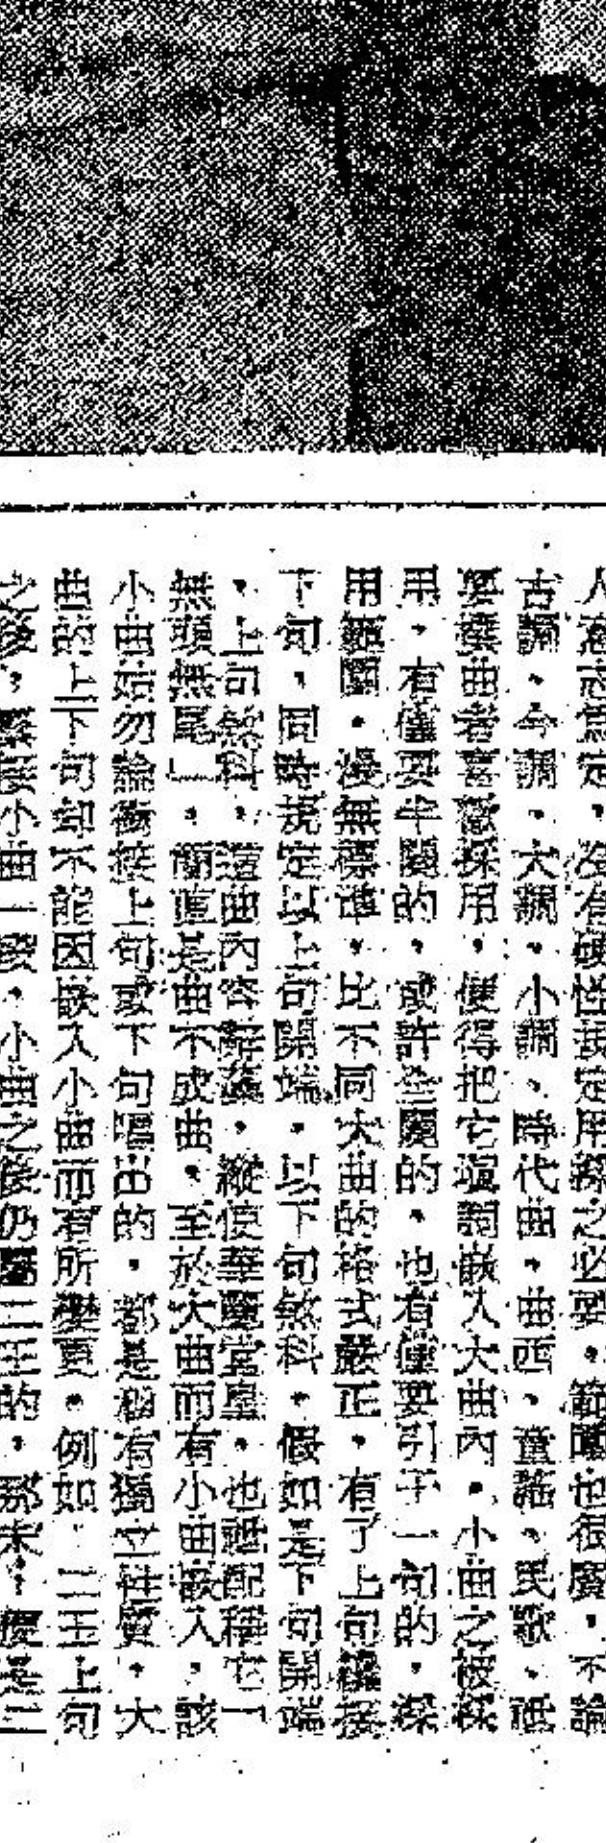 人意志爲定，沒有硬性規定用採之必要。範圍也很廣，不論
古調、今調、大調、小調、時代曲、曲西、童謠、民歌、祗
要撰曲者喜歡採用，便得把它塡詞嵌入大曲內。小曲之被採
用，有僅要半闋的，或許全闋的，也有僅要引子一句的，採
用範圍，漫無標準，比不同大曲的格式嚴正，有了上句纔接
下句，同時規定以上句開端，以下句煞科，假如是下句開端
，上句煞科，這曲內容辭藻，縱使華麗堂皇，也祗配稱它「
無頭無尾」，簡直是曲不成曲，至於大曲而有小曲嵌入，該
小曲姑勿論銜接上句或下句唱出的，都是極有獨立性質，大
曲的上下句却不能因嵌入小曲而有所變更。例如：二王上句
之後，緊接小曲一段，小曲之後仍屬二王的，那末，便是二